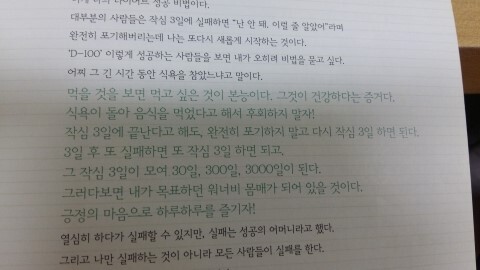 다이어트 성공 비법이다.
대부분의 사람들은 작심 3일에 실패하면 “난 안 돼. 이럴 줄 알았어”라며
완전히 포기해버리는데 나는 또다시 새롭게 시작하는 것이다.
‘D-100’ 이렇게 성공하는 사람들을 보면 내가 오히려 비법을 묻고 싶다.
어찌 그 긴 시간 동안 식욕을 참았느냐고 말이다.
먹을 것을 보면 먹고 싶은 것이 본능이다. 그것이 건강하다는 증거다.
식욕이 돌아 음식을 먹었다고 해서 후회하지 말자!
작심 3일에 끝난다고 해도, 완전히 포기하지 말고 다시 작심 3일 하면 된다.
3일 후 또 실패하면 또 작심 3일 하면 되고.
그 작심 3일이 모여 30일, 300일, 3000일이 된다.
그러다보면 내가 목표하던 워너비 몸매가 되어 있을 것이다.
긍정의 마음으로 하루하루를 즐기자!
열심히 하다가 실패할 수 있지만, 실패는 성공의 어머니라고 했다.
그리고 나만 실패하는 것이 아니라 모든 사람들이 실패를 한다.